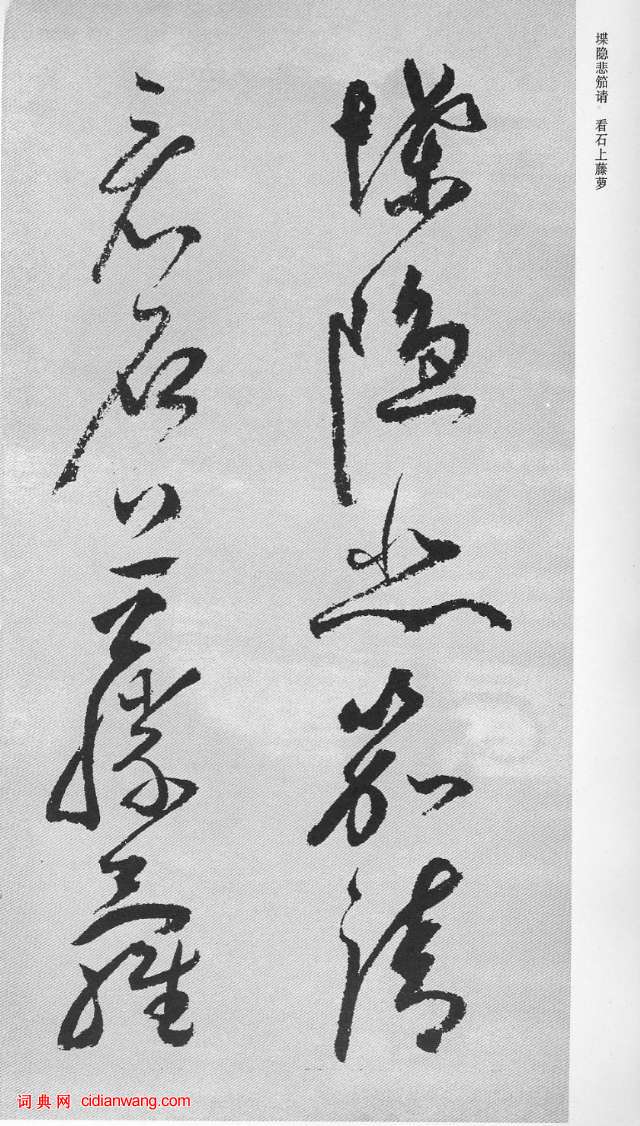 堞隐悲笳请 看石上藤萝
堞隱悲笳請
看石上藤蘿
词典网 cidianwang.com